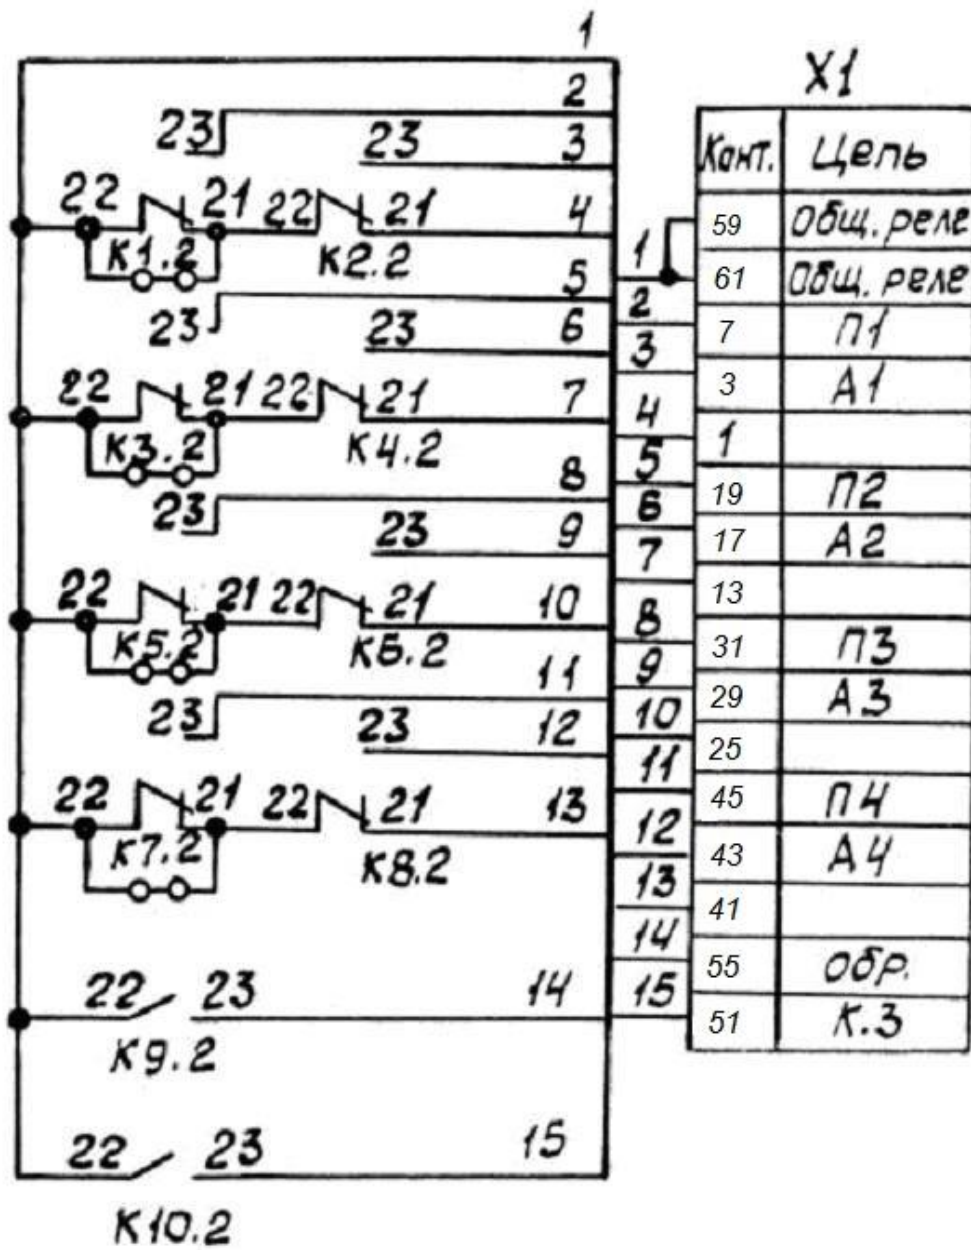 1
2
23
23 3
22 21 22 21 4
К1.2 К2.2
5
23 23 6
22 21 22 21 7
К3.2 К4.2
8
23 23 9
22 21 22 21 10
К5.2 К6.2
11
23 23 12
22 21 22 21 13
К7.2 К8.2
22 23 14
К9.2
22 23 15
К10.2
1
2
3
4
5
6
7
8
9
10
11
12
13
14
15
X1
Конт. Цепь
59 Общ. реле
61 Общ. реле
7 П1
3 А1
1
19 П2
17 А2
13
31 П3
29 А3
25
45 П4
43 А4
41
55 Обр.
51 К.З